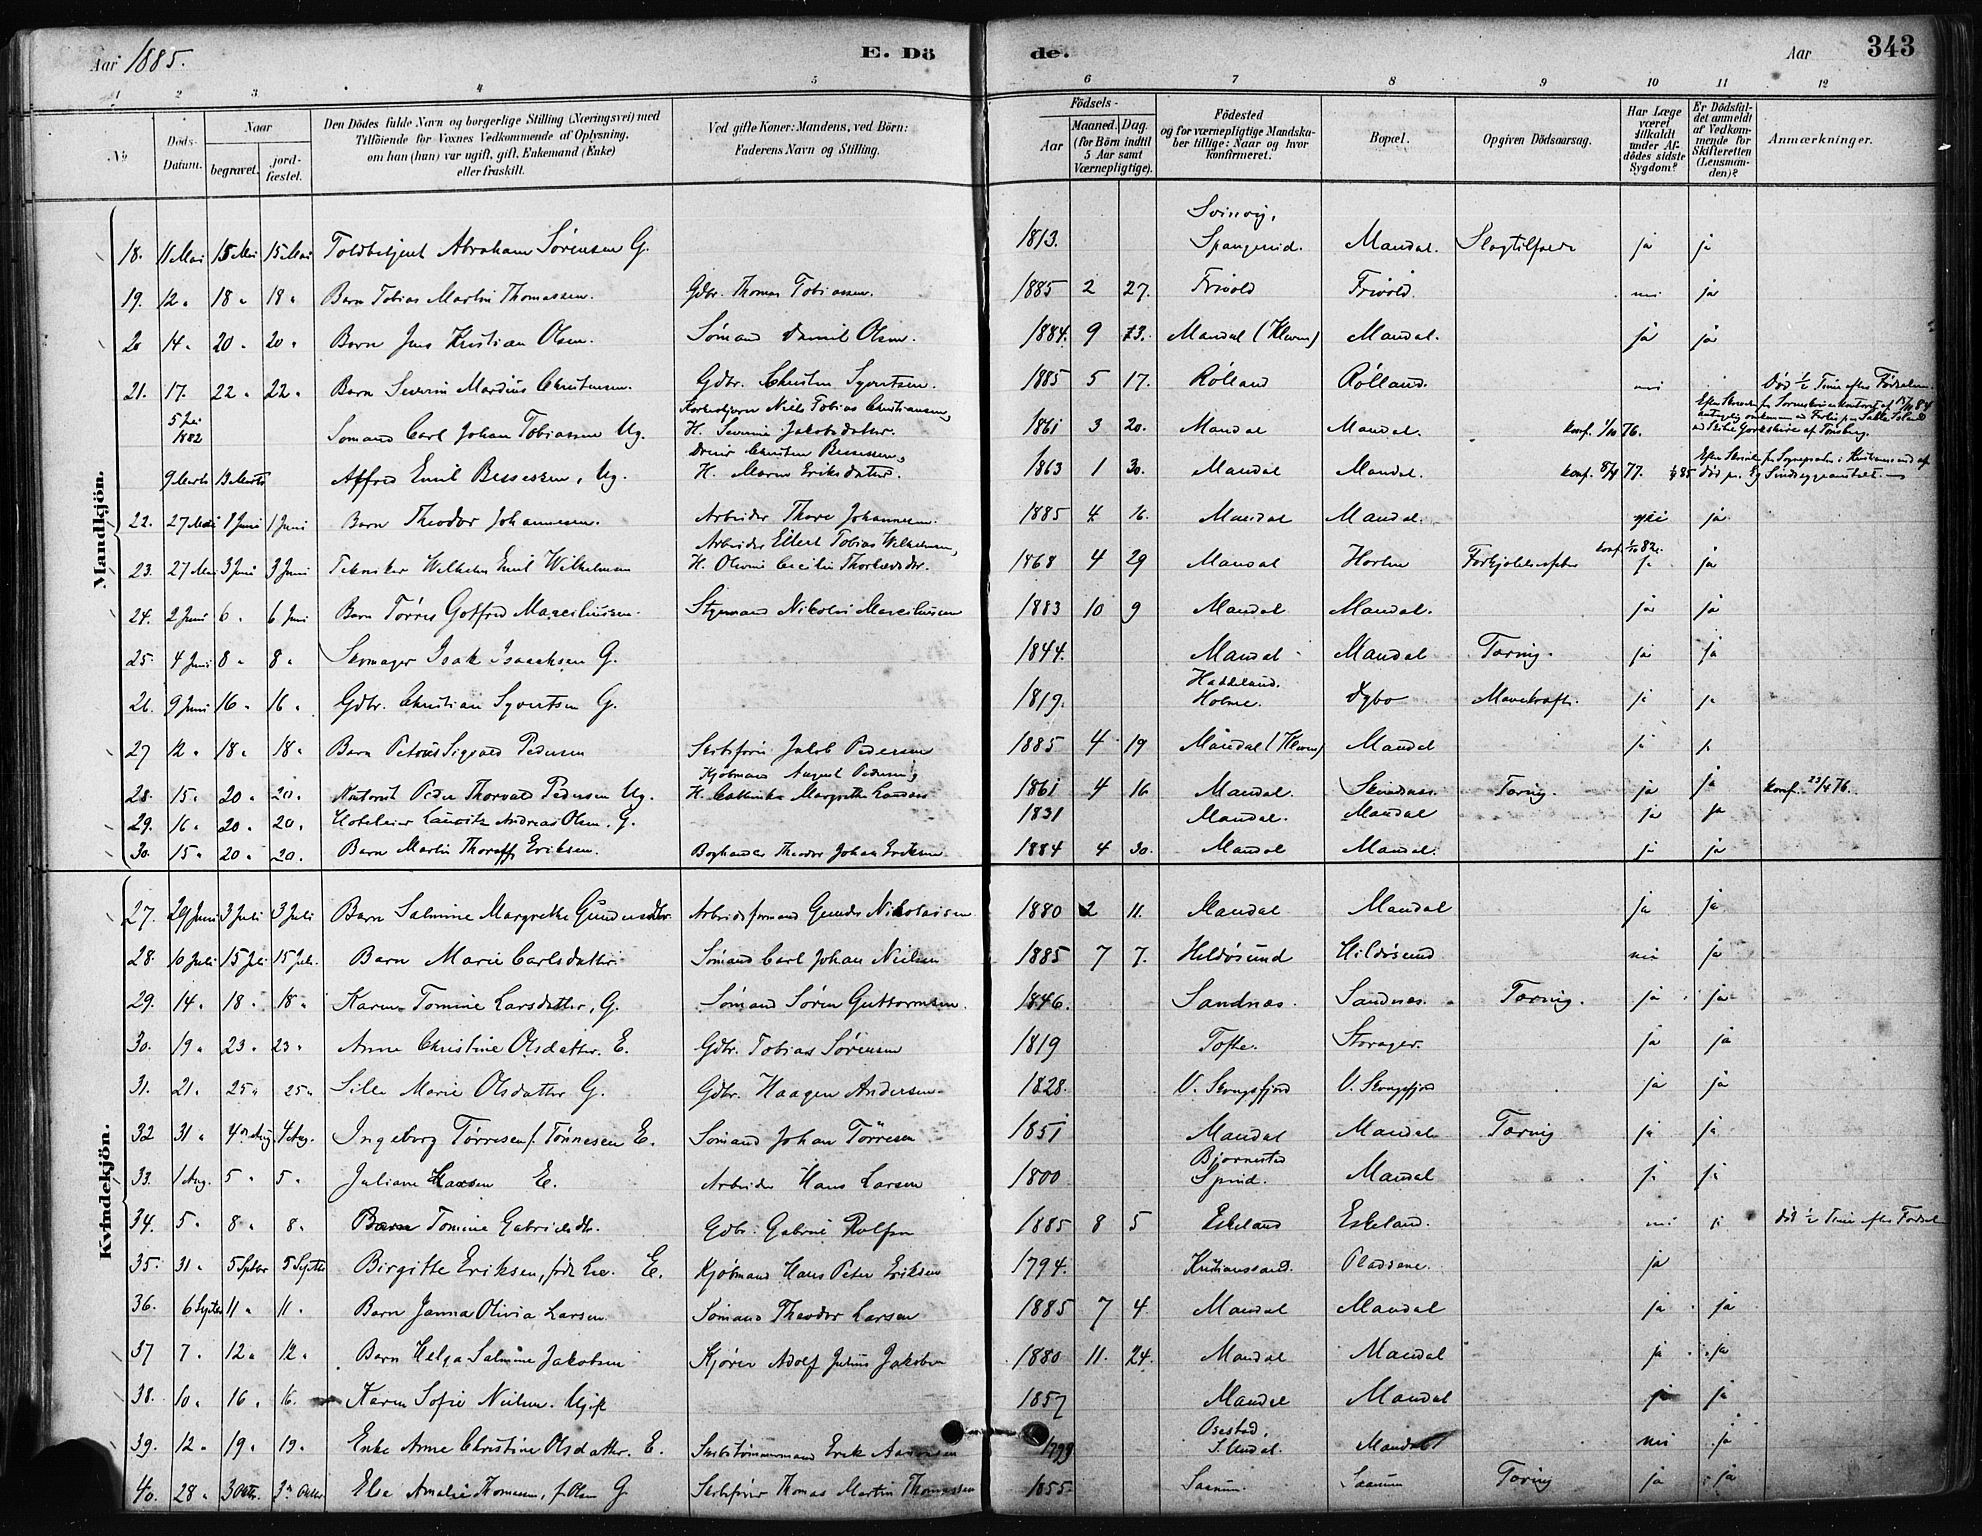 Aar 1885. E. Dö de. Aar 343
1 2 3 4 5 6 7 8 9 10 11 12
No
Döds-Datum.
Naar begravet. jord-fæstet.
Den Dödes fulde Navn og borgerlige Stilling (Næringsvei) med
Tilföiende for Voxnes Vedkommende af Oplysning,
om han (hun) var ugift, gift, Enkemand (Enke)
eller fraskilt.
Ved gifte Koner: Mandens, ved Börn:
Faderens Navn og Stilling.
Födsels-
Aar Maaned. Dag.
(for Börn indtil
5 Aar samt
Værnepligtige).
Födested
og for værnepligtige Mandska-
ber tillige: Naar og hvor
konfirmeret.
Bopæl.
Opgiven Dödsaarsag.
Har Læge
været
tilkaldt
under Af-
dödes sidste
Sygdom?
Er Dödsfal-
det anmeldt
af Vedkom-
mende for
Skifteretten
(Lensman-
den)?
Anmærkninger.
Mandkjön.
18. 11 Mai 15 Mai 15 Mai Toldbetjent Abraham Sørensen G. 1813. Svinvig, Spangereid. Mandal. Slagtilfælde ja ja
19. 12 " 18 " 18 " Barn Tobias Martin Thomassen. Gdbr. Thomas Tobiassen. 1885 2 27. Frivold Frivold. nei ja
20 14 " 20 " 20 " Barn Jens Kristian Olsen. Sømand Daniel Olsen. 1884. 9 23. Mandal (Kleven) Mandal. ja ja
21. 17. 22 " 22 " Barn Severin Mardius Christensen. Gdbr. Christen Syvertsen. 1885 5 17. Rølland Rølland. nei Død 1/2 Time efter Fødselen.
5 Juli 1882 Sømand Carl Johan Tobiassen Ug. Niels Tobias Christiansen, H. Severine Jakobsdatter. 1861 3 20. Mandal Mandal. konf. 1/10 76.
9 Marts 13 Marts Alfred Emil Bessesen, Ug. Christen Bessesen, H. Maren Eriksdatter. 1863 1 30. Mandal Mandal. konf. 8/4 77.
22. 27 Mai 1 Juni 1 Juni Barn Theodor Johannesen. Arbeider Thore Johannesen. 1885 4 16. Mandal Mandal. ja
23. 27 Mai 3 Juni 3 Juni Tekniker Wilhelm Emil Wilhelmsen Arbeider Ellert Tobias Wilhelmsen, H. Olevine Cecilie 1868 4 29 Mandal Holum konf. 1/10 82. ja ja
24. 2 Juni 6 " 6 Juni Barn Tørres Gotfred Marcelliusen. Styrmand Nikolai Marcelliusen 1883 10 9 Mandal Mandal. ja ja
25. 4 Juni 8 " 8 " Skomager Isak Isaachsen G. 1844. Mandal Mandal Tæring. ja ja
26. 9 Juni 16 " 16 " Gdbr. Christian Syvertsen G. 1819. Haddeland. Holme. Dybo Mavekræft. ja ja
27 12 " 18 " 18 " Barn Petrus Sigvald Pedersen Skibsfører Jakob Pedersen 1885 4 19 Mandal (Kleven) Mandal ja ja
28. 15 " 20 " 20 " Peder Thorvald Pedersen Ug. Kjøbmand August Pedersen, H. Cathinka Margrethe 1861 4 16 Mandal. Skinsnes. Tæring. ja ja konf. 23/4 76.
29. 16 " 20 " 20 " Hoteleier Lauritz Andreas Olsen. G. 1831 Mandal. Mandal ja ja
30. 15 " 20 " 20. Barn Martin Thoralf Eriksen. Boghandler Theodor Johan Eriksen 1884 4 30. Mandal Mandal. ja ja
Kvindekjön.
27. 29 Juni 3 Juli 3 Juli Barn Salmine Margrethe Gundersdtr. Arbeidsformand Gunder Nikolaisen 1880 2 11. Mandal Mandal ja ja
28. 10 Juli 15 Juli 15 Juli. Barn Marie Carlsdatter Sømand Carl Johan Nielsen 1885 7 7. Hildøsund Hildøsund nei ja
29. 14 " 18 " 18 " Karen Tomine Larsdatter, G. Sømand Søren Guttormsen. 1846. Sandnæs. Sandnæs. Tæring. ja ja
30. 19 " 23 " 23 " Anne Christine Olsdatter. E. Gdbr. Tobias Sørensen 1819 Tofte. Storager. ja ja
31. 21. 25 " 25 " Sille Marie Olsdatter G. Gdbr. Haagen Andersen 1828. V. Skougsfjord V. Skougsfjord ja ja
32 31 " 4 Aug. 4 Aug. Ingeborg Tørresen f. Tønnesen E. Sømand Johan Törresen 1851 Mandal Mandal Tæring ja ja
33. 1 Aug. 5 " 5 " Juliane Larsen E. Arbeider Hans Larsen 1800 Bjørnestad Spind. Mandal ja ja
34. 5 " 8 " 8 " Barn Tomine Gabrielsdtr. Gdbr. Gabriel Rolfsen 1885 8 5 Eskeland Eskeland. nei ja død 1/2 Time efter Fødselen
35. 31 " 5 Septbr 5 Septbr Birgitte Eriksen, født Lie. E. Kjøbmand Hans Peter Eriksen 1794. Kristianssand. Pladsene. ja
36. 6 Septbr 11 " 11 " Barn Janna Olivia Larsen Sømand Theodor Larsen 1885 7 4. Mandal Mandal ja ja
37 7 " 12 " 12 " Barn Helga Salmine Jakobsen Kjører Adolf Julius Jakobsen 1880 11. 24. Mandal Mandal ja ja
38. 10 " 16 " 16. Karen Sofie Nielsen. Ugift 1857 Mandal Mandal ja ja
39. 12 " 19 " 19 " Enke Anne Christine Olsdatter. E. Skibstømmermand Erik Aanonsen 1799 Osestad, S. Undal. Mandal nei ja
40. 28 " 3 Octbr. 3 Octbr Else Amalie Thomesen, f. Olsen G. Skibsfører Thomas Martin Thomassen 1855. Saanum. Saanum Tæring ja ja